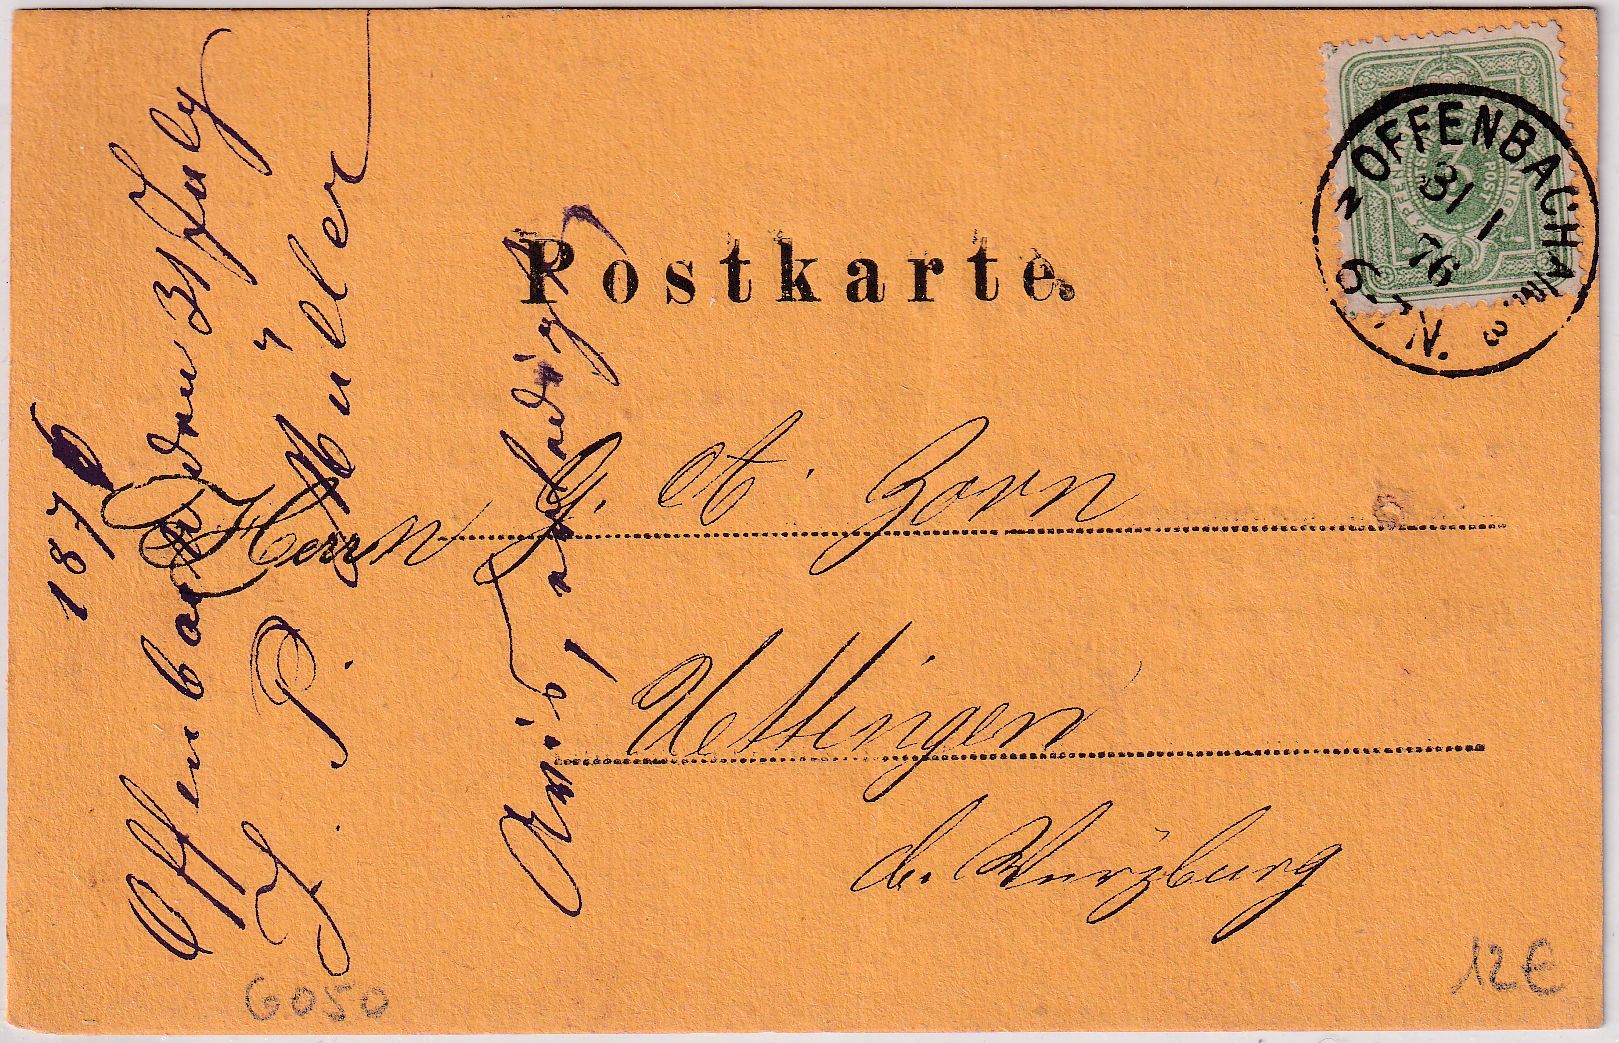 Postkarte.
OFFENBACH A/M. 3
31 1 76
6-7 N.
3
PFENNIGE
Herrn G. A. Zorn
Uettingen
b. Würzburg
Offenbach den 31 July
1876
J. P. Müller
6050
12€